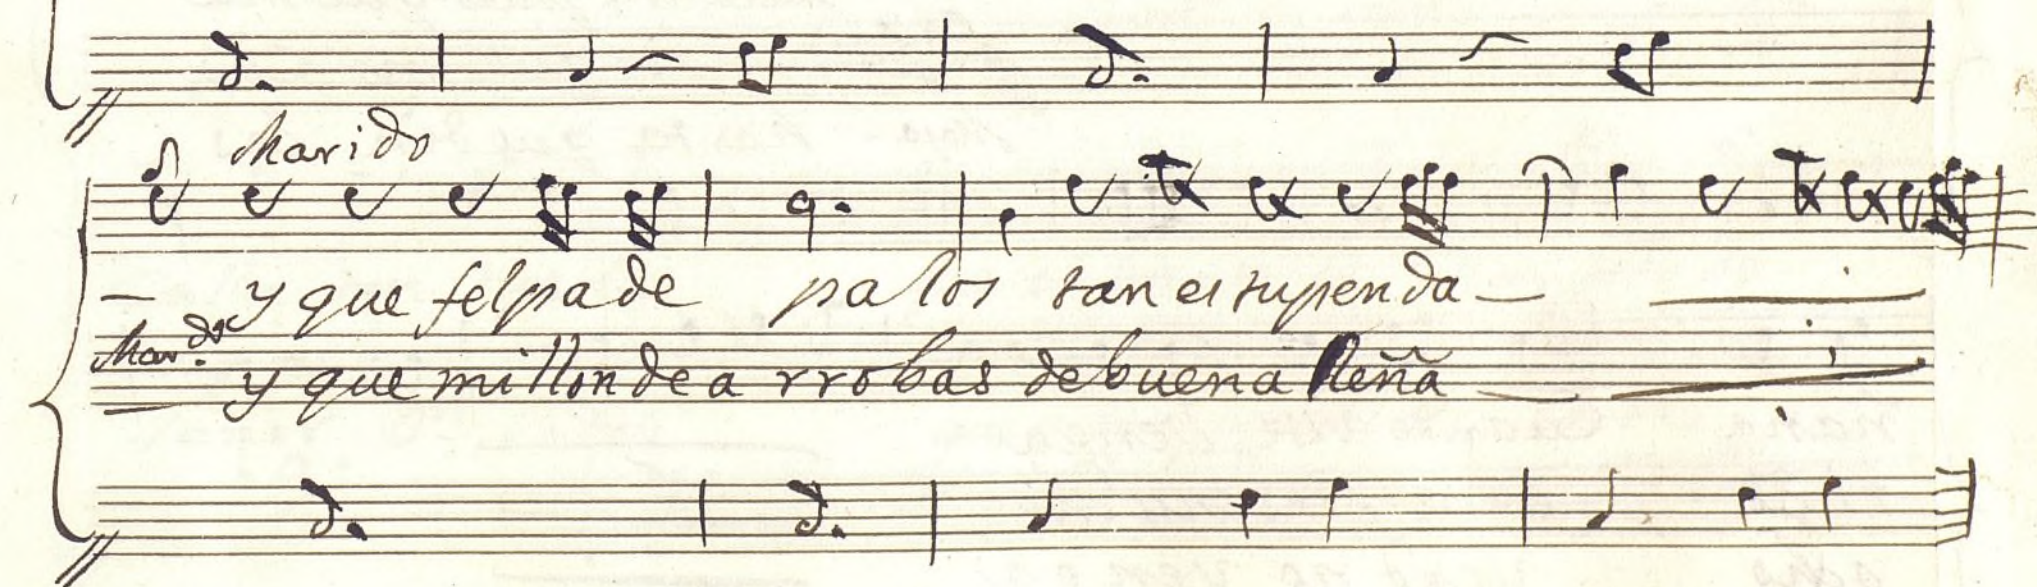 Marido
y que felpa de palos tan estupenda
Mar.do y que millon de a rrobas de buena leña